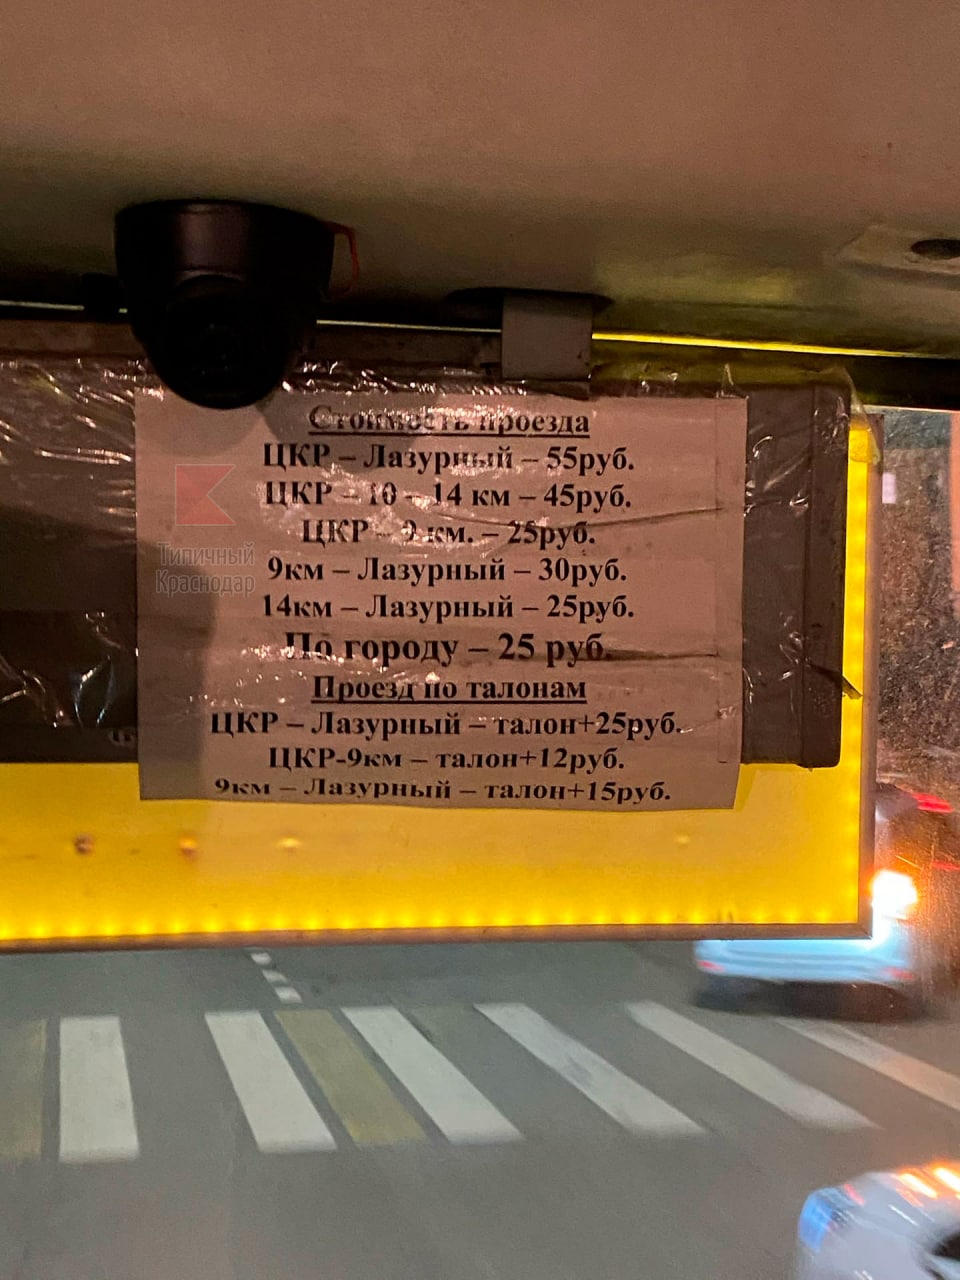 Стоимость проезда
ЦКР – Лазурный – 55руб.
ЦКР – 10 – 14 км – 45руб.
ЦКР – 9 км. – 25руб.
9км – Лазурный – 30руб.
14км – Лазурный – 25руб.
По городу – 25 руб.
Проезд по талонам
ЦКР – Лазурный – талон+25руб.
ЦКР-9км – талон+12руб.
9км – Лазурный – талон+15руб.
Типичный
Краснодар